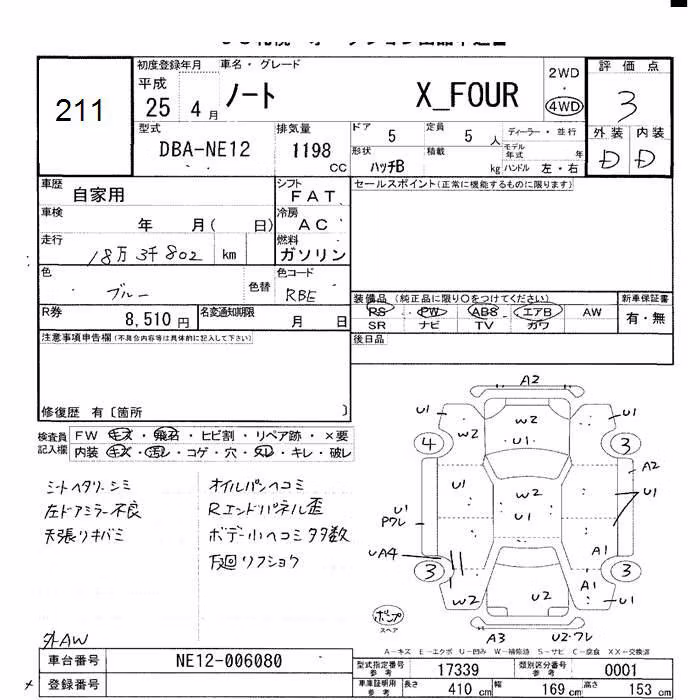 211
初度登録年月
平成
25 4月
車名・グレード
ノート X_FOUR
2WD
・
4WD
評価点
3
外装 内装
D D
型式
DBA-NE12
排気量
1198 CC
ドア 5
定員 5 人
ディーラー・並行
形状 ハッチB
積載 kg
モデル年式 年
ハンドル 左・右
車歴 自家用
シフト FAT
セールスポイント(正常に機能するものに限ります)
車検 年 月( 日)
冷房 AC
走行 18万3千802 km
燃料 ガソリン
色 ブルー 色替
色コード RBE
装備品 (純正品に限り○をつけてください) 新車保証書
PS PW ABS エアB AW 有・無
SR ナビ TV カワ
R券 8,510円
名変通知期限 月 日
後日品
注意事項申告欄(不具合内容等は具体的に記入して下さい)
修復歴 有〔箇所 〕
検査員記入欄
FW キズ・飛石・ヒビ割・リペア跡・×要
内装 キズ・汚レ・コゲ・穴・スレ・キレ・破レ
シートヘタリ シミ
左ドアミラー不良
天張リキバミ
オイルパンヘコミ
Rエンドパネル歪
ボデー小ヘコミ多数
下廻リフショク
外AW
A2
U1 U1
W2 W2
U1
4 3
A2
U1 W2 U1
U1 U1
Pワレ
UA4 A1
3 3
A1
W2 U2 U1
ポンプ
スペア
A3 U2・ワレ
A-キズ E-エクボ U-凹み W-補修跡 S-サビ C-腐食 XX-交換済
車台番号 NE12-006080
登録番号
型式指定番号 参考 17339
類別区分番号 参考 0001
車庫証明用 参考 長さ 410 cm 幅 169 cm 高さ 153 cm